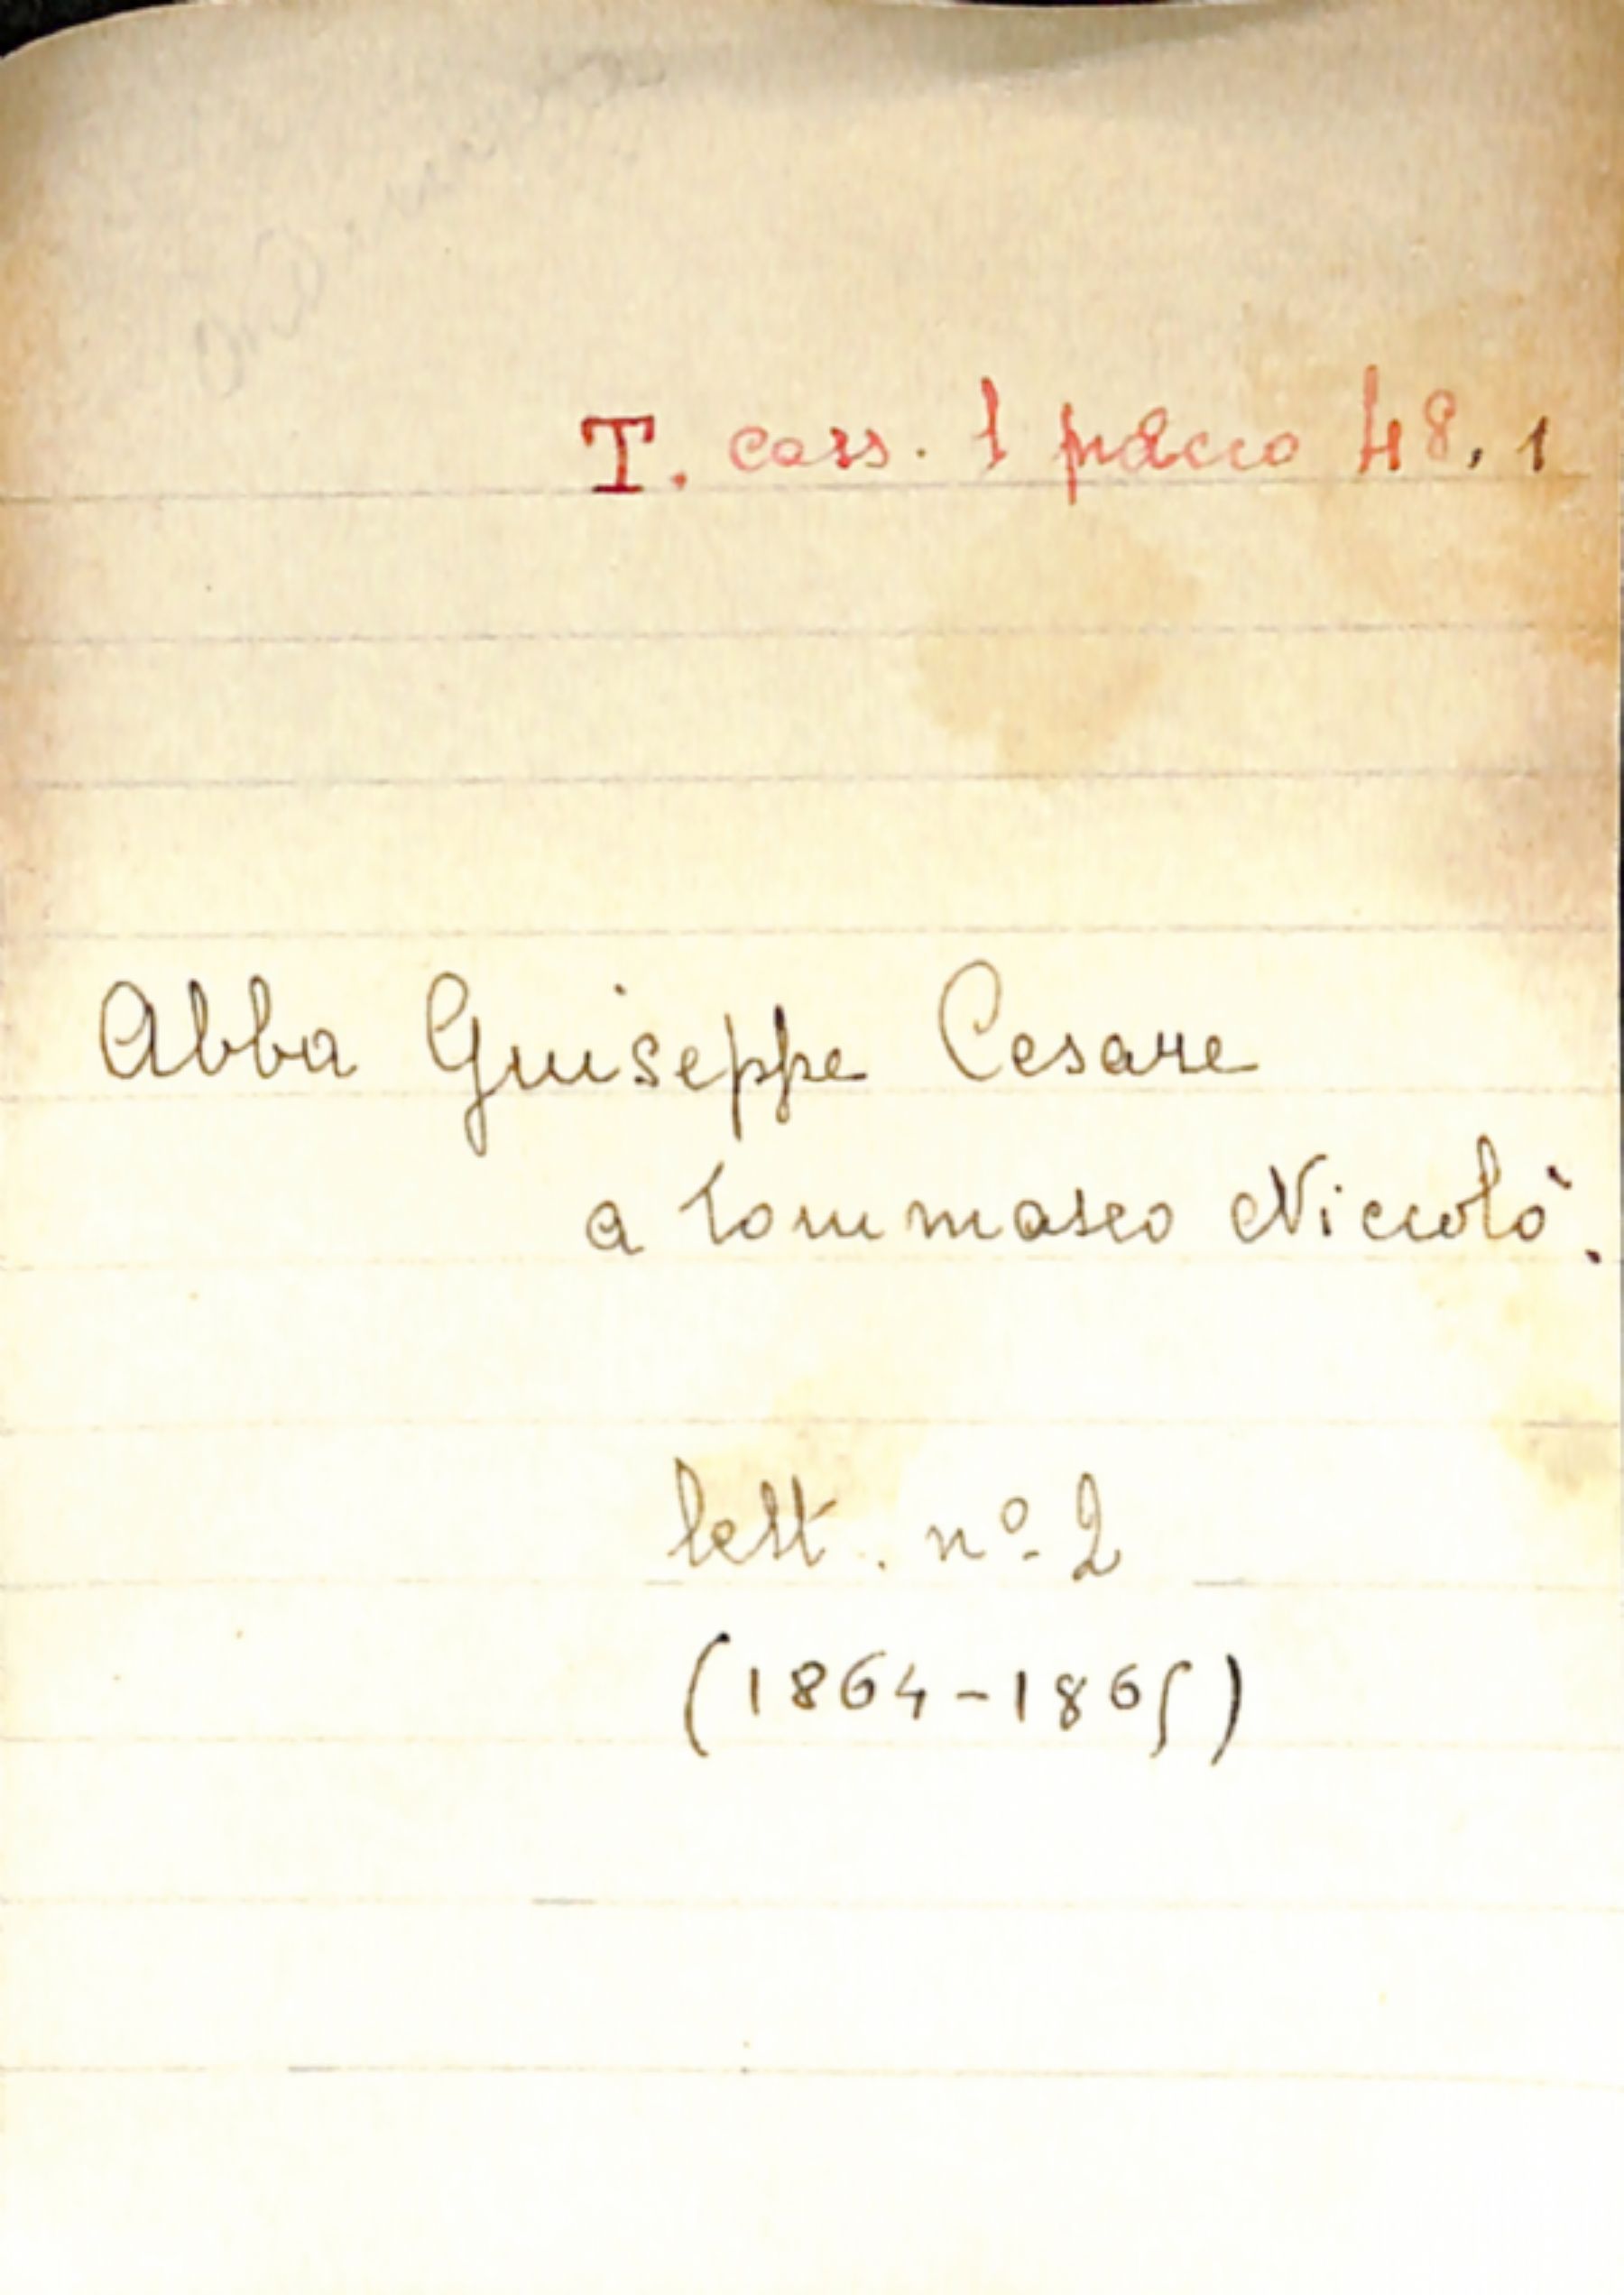 T. cass. 1 pacco 48, 1
Abba Giuseppe Cesare
a Tommaseo Niccolò.
lett. nº 2
(1864-1865)